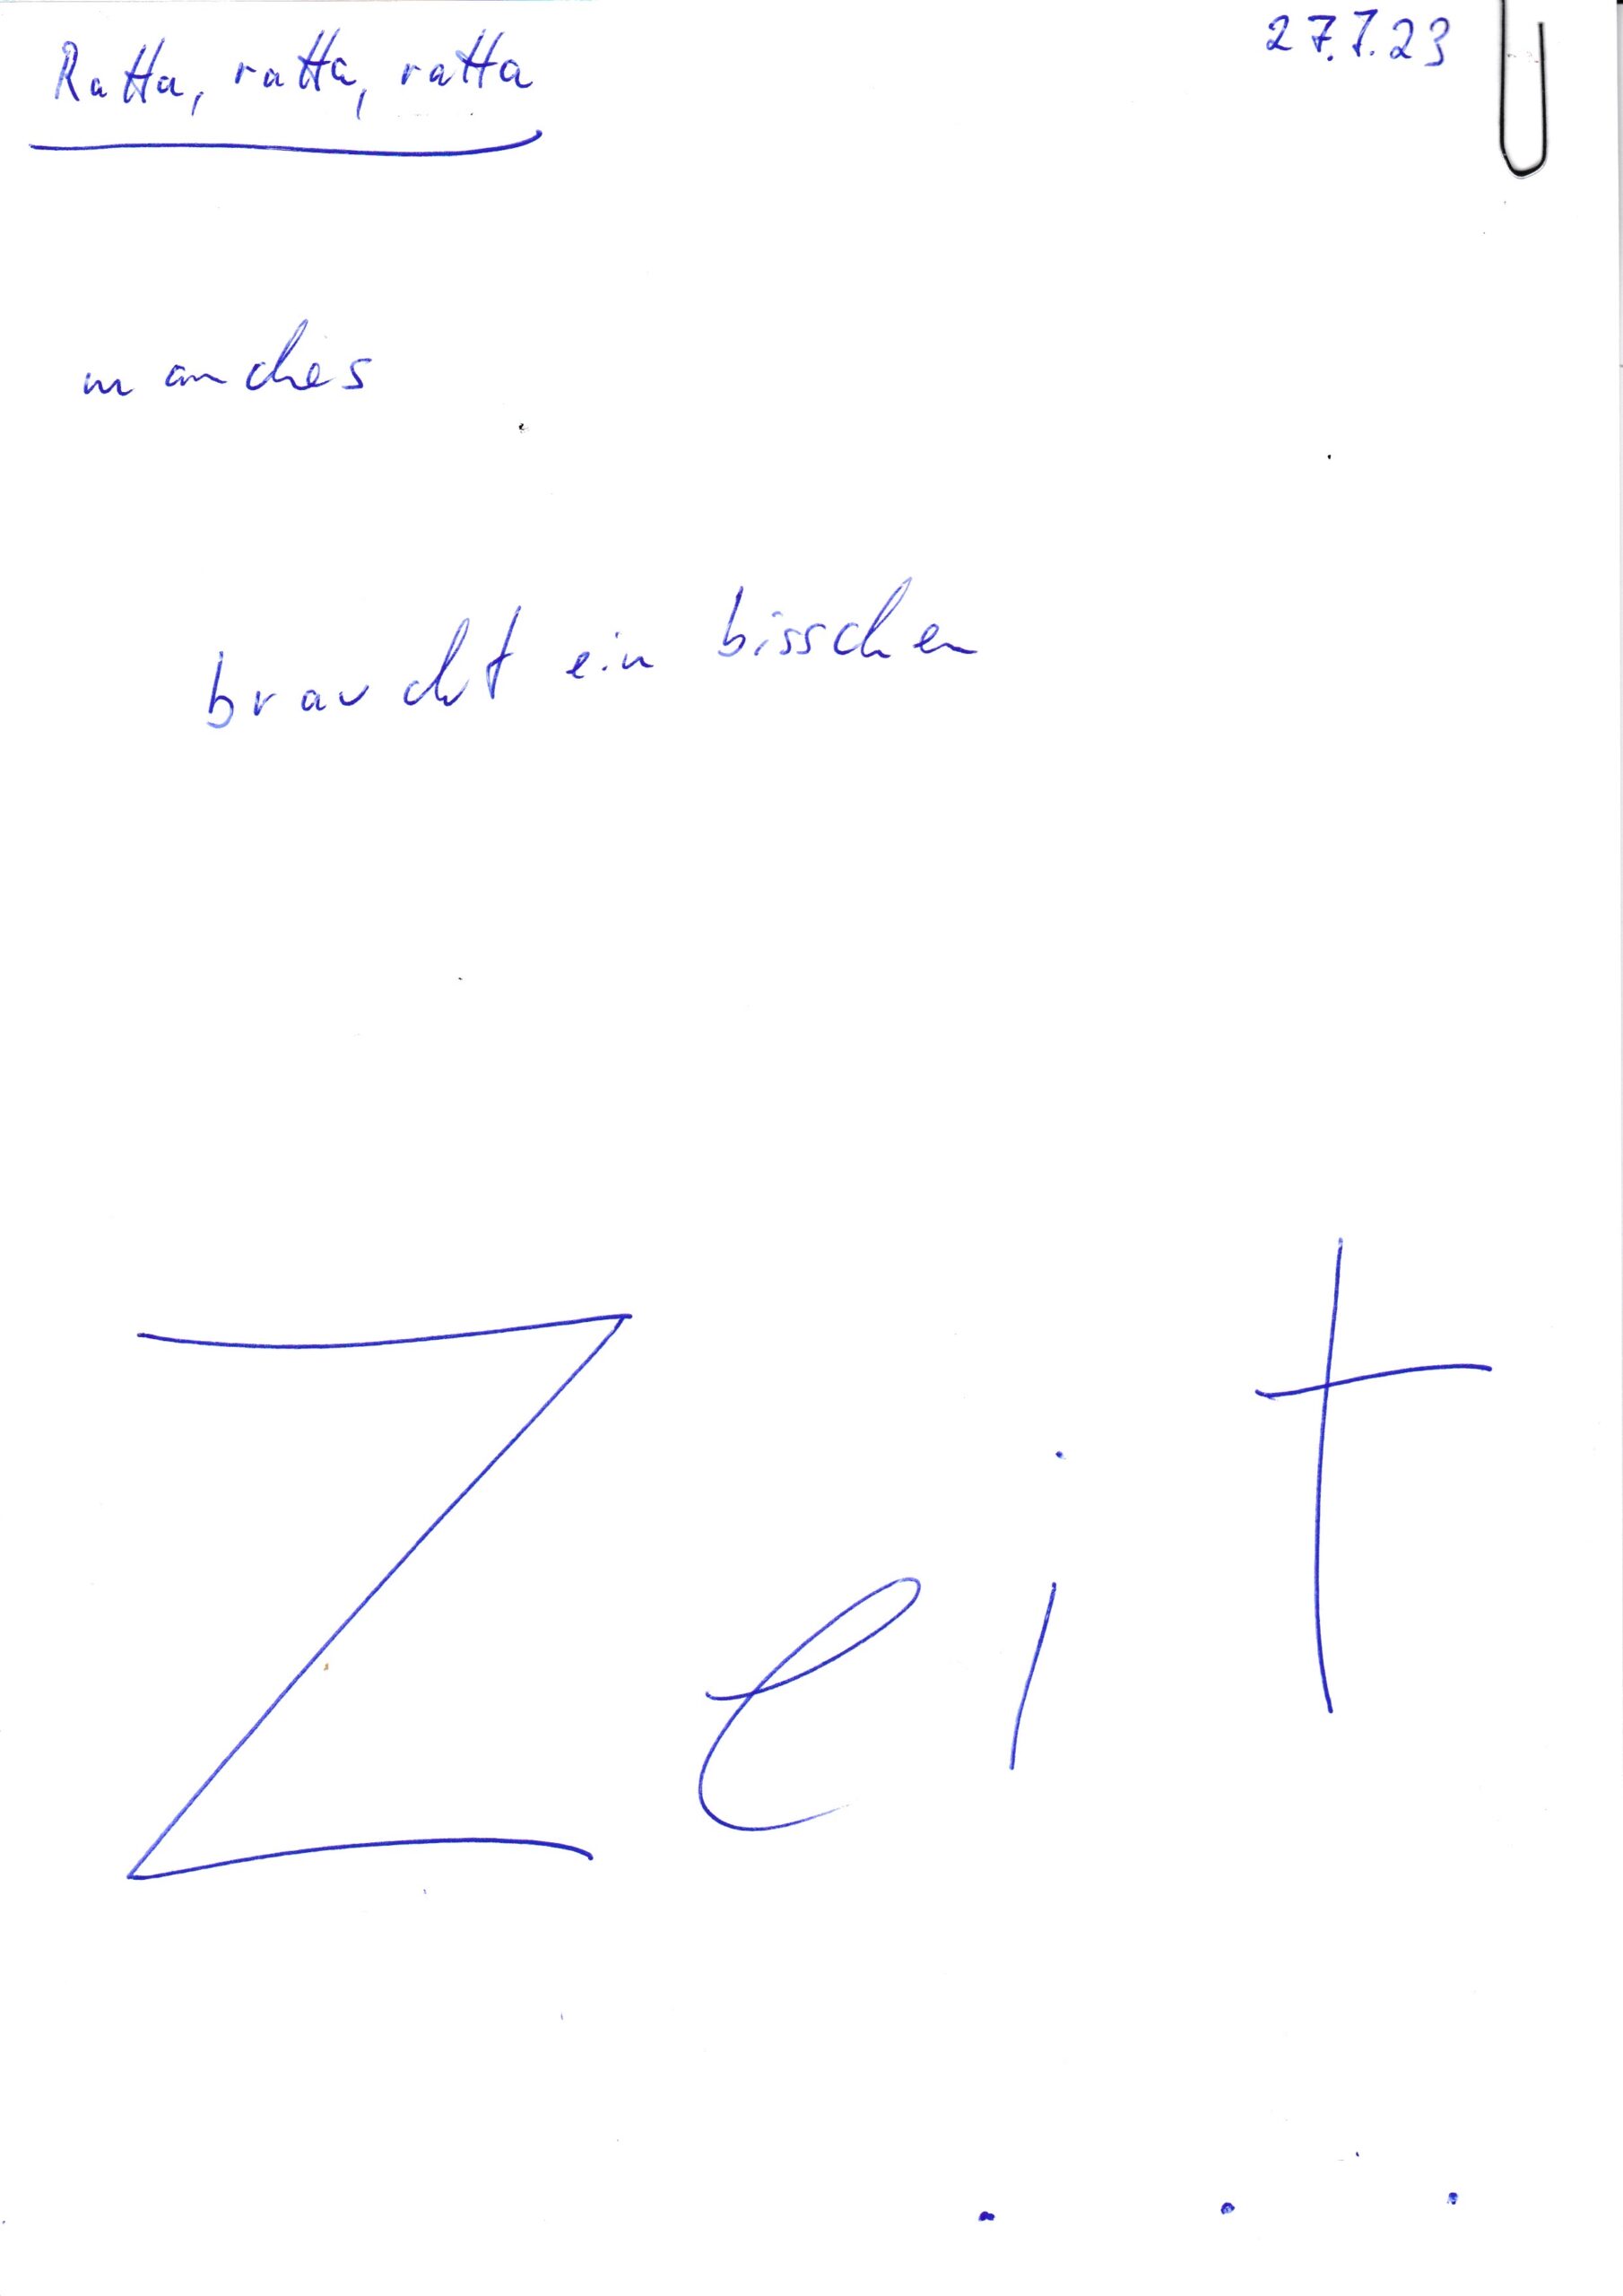 Ratta, ratta, ratta
27.7.23
manches
braucht ein bisschen
Zeit
. . .